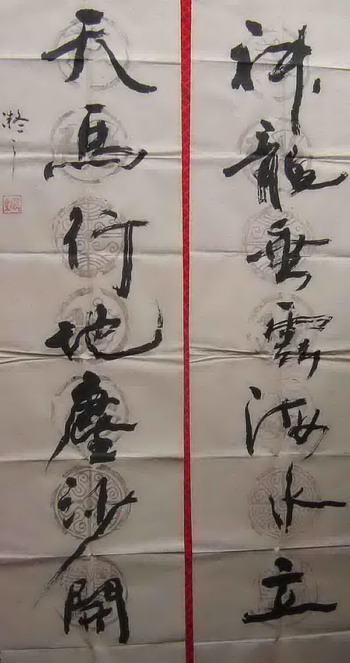 神龍垂雲海水立
天馬行地塵沙開
凝之